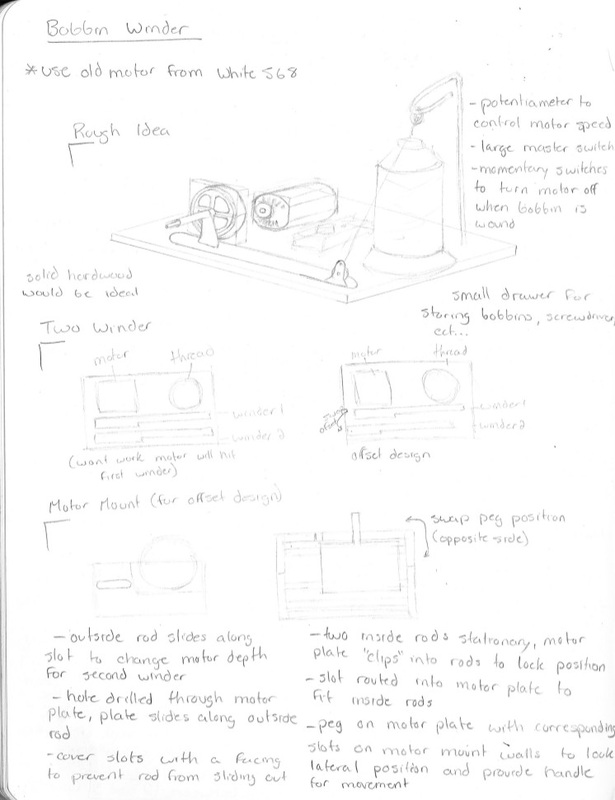 Bobbin Winder
*use old motor from White 568
Rough Idea
- potentiameter to
control motor speed
- large master switch
- momentary switches
to turn motor off
when bobbin is
wound
solid hardwood
would be ideal
small drawer for
storing bobbins, screwdriver,
ect...
Two Winder
motor
thread
winder 1
winder 2
(wont work motor will hit
first winder)
motor
thread
winder 1
winder 2
offset design
Motor Mount (for offset design)
swap peg position
(opposite side)
- outside rod slides along
slot to change motor depth
for second winder
- hole drilled through motor
plate, plate slides along outside
rod
- cover slots with a facing
to prevent rod from sliding out
- two inside rods stationary, motor
plate "clips" into rods to lock position
- slot routed into motor plate to
fit inside rods
- peg on motor plate with corresponding
slots on motor mount walls to lock
lateral position and provide handle
for movement